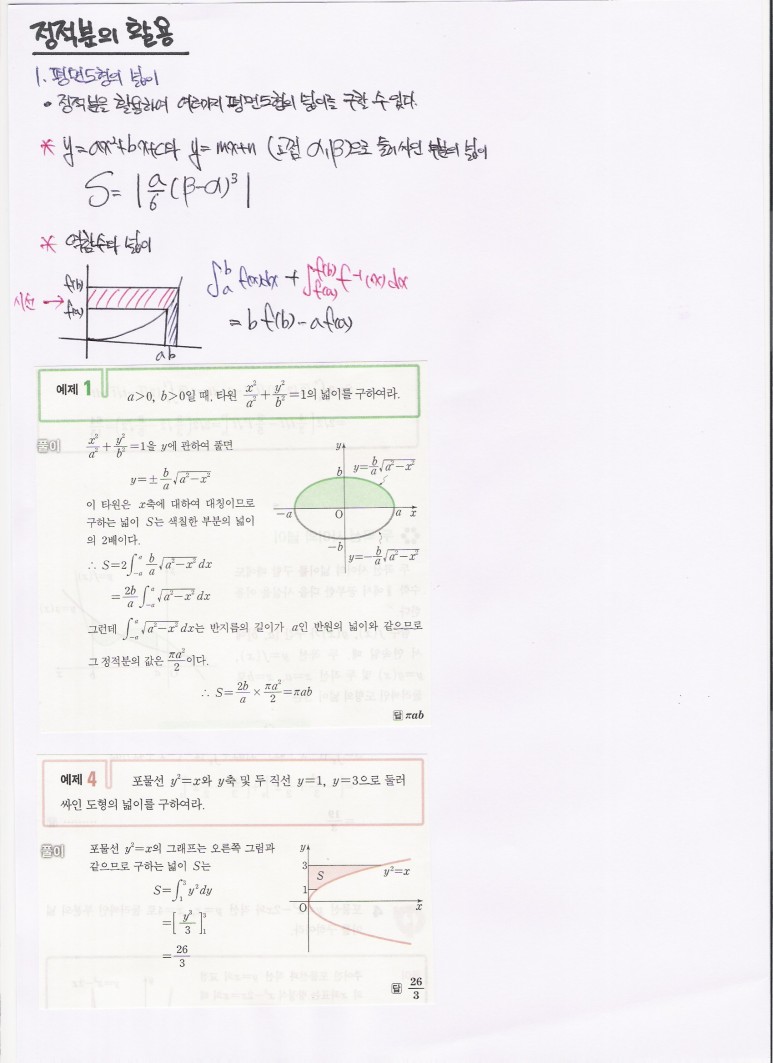 정적분의 활용
1. 평면도형의 넓이
• 정적분을 활용하여 여러가지 평면도형의 넓이를 구할 수 있다.
* y=ax²+bx+c와 y=mx+n (교점 α,β)으로 둘러싸인 부분의 넓이
S= |a/6 (β-α)³|
* 역함수와 넓이
f(b)
시선 → f(a)
a b
∫_a^b f(x)dx + ∫_{f(a)}^{f(b)} f⁻¹(x)dx
= b f(b) - a f(a)
예제 1 a>0, b>0일 때, 타원 x²/a² + y²/b² =1의 넓이를 구하여라.
풀이 x²/a² + y²/b² =1을 y에 관하여 풀면
y=± b/a √(a²-x²)
이 타원은 x축에 대하여 대칭이므로
구하는 넓이 S는 색칠한 부분의 넓이
의 2배이다.
∴ S=2∫_{-a}^{a} b/a √(a²-x²) dx
= 2b/a ∫_{-a}^{a} √(a²-x²) dx
y
b y= b/a √(a²-x²)
-a O a x
-b y=- b/a √(a²-x²)
그런데 ∫_{-a}^{a} √(a²-x²) dx는 반지름의 길이가 a인 반원의 넓이와 같으므로
그 정적분의 값은 πa²/2 이다.
∴ S= 2b/a × πa²/2 =πab
답 πab
예제 4 포물선 y²=x와 y축 및 두 직선 y=1, y=3으로 둘러
싸인 도형의 넓이를 구하여라.
풀이 포물선 y²=x의 그래프는 오른쪽 그림과
같으므로 구하는 넓이 S는
S=∫_1^3 y² dy
=[ y³/3 ]_1^3
= 26/3
y
3 S y²=x
1
O x
답 26/3